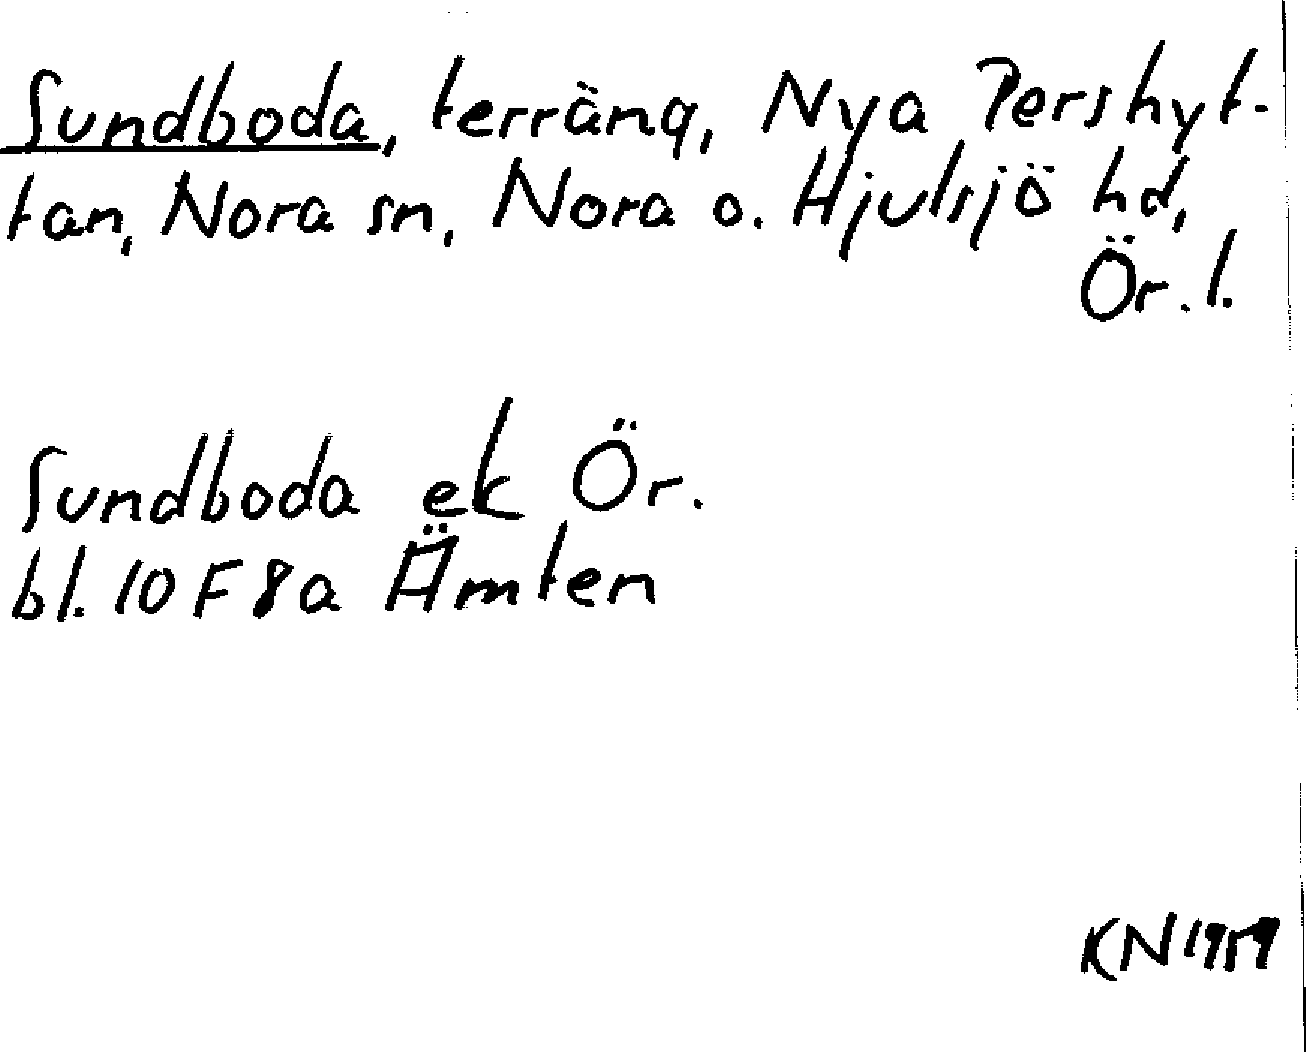 Sundboda, terräng, Nya Pershyt-
tan, Nora sn, Nora o. Hjulsjö hd,
Ör. l.
Sundboda ek Ör.
bl. 10 F 8a Ämten
KN 1959